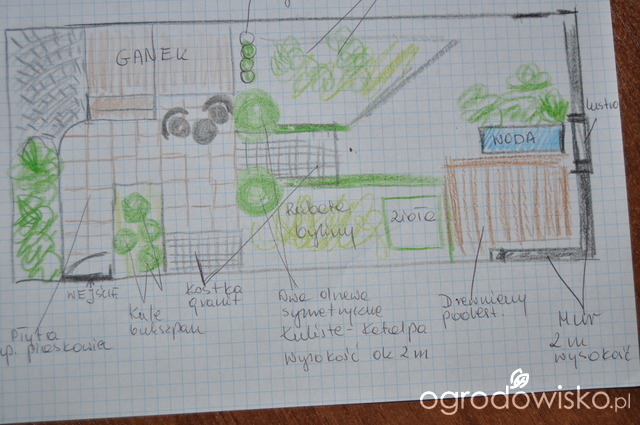 GANEK
lustro
WODA
Rabata
byliny
zioła
WEJŚCIE
Płyta
np. piaskowia
Kule
bukszpan
Kostka
granit
Dwa drzewa
symetryczne
Kuliste - Katalpa
wysokość ok 2m
Drewniany
podest.
Mur
2 m
wysokość
ogrodowisko.pl